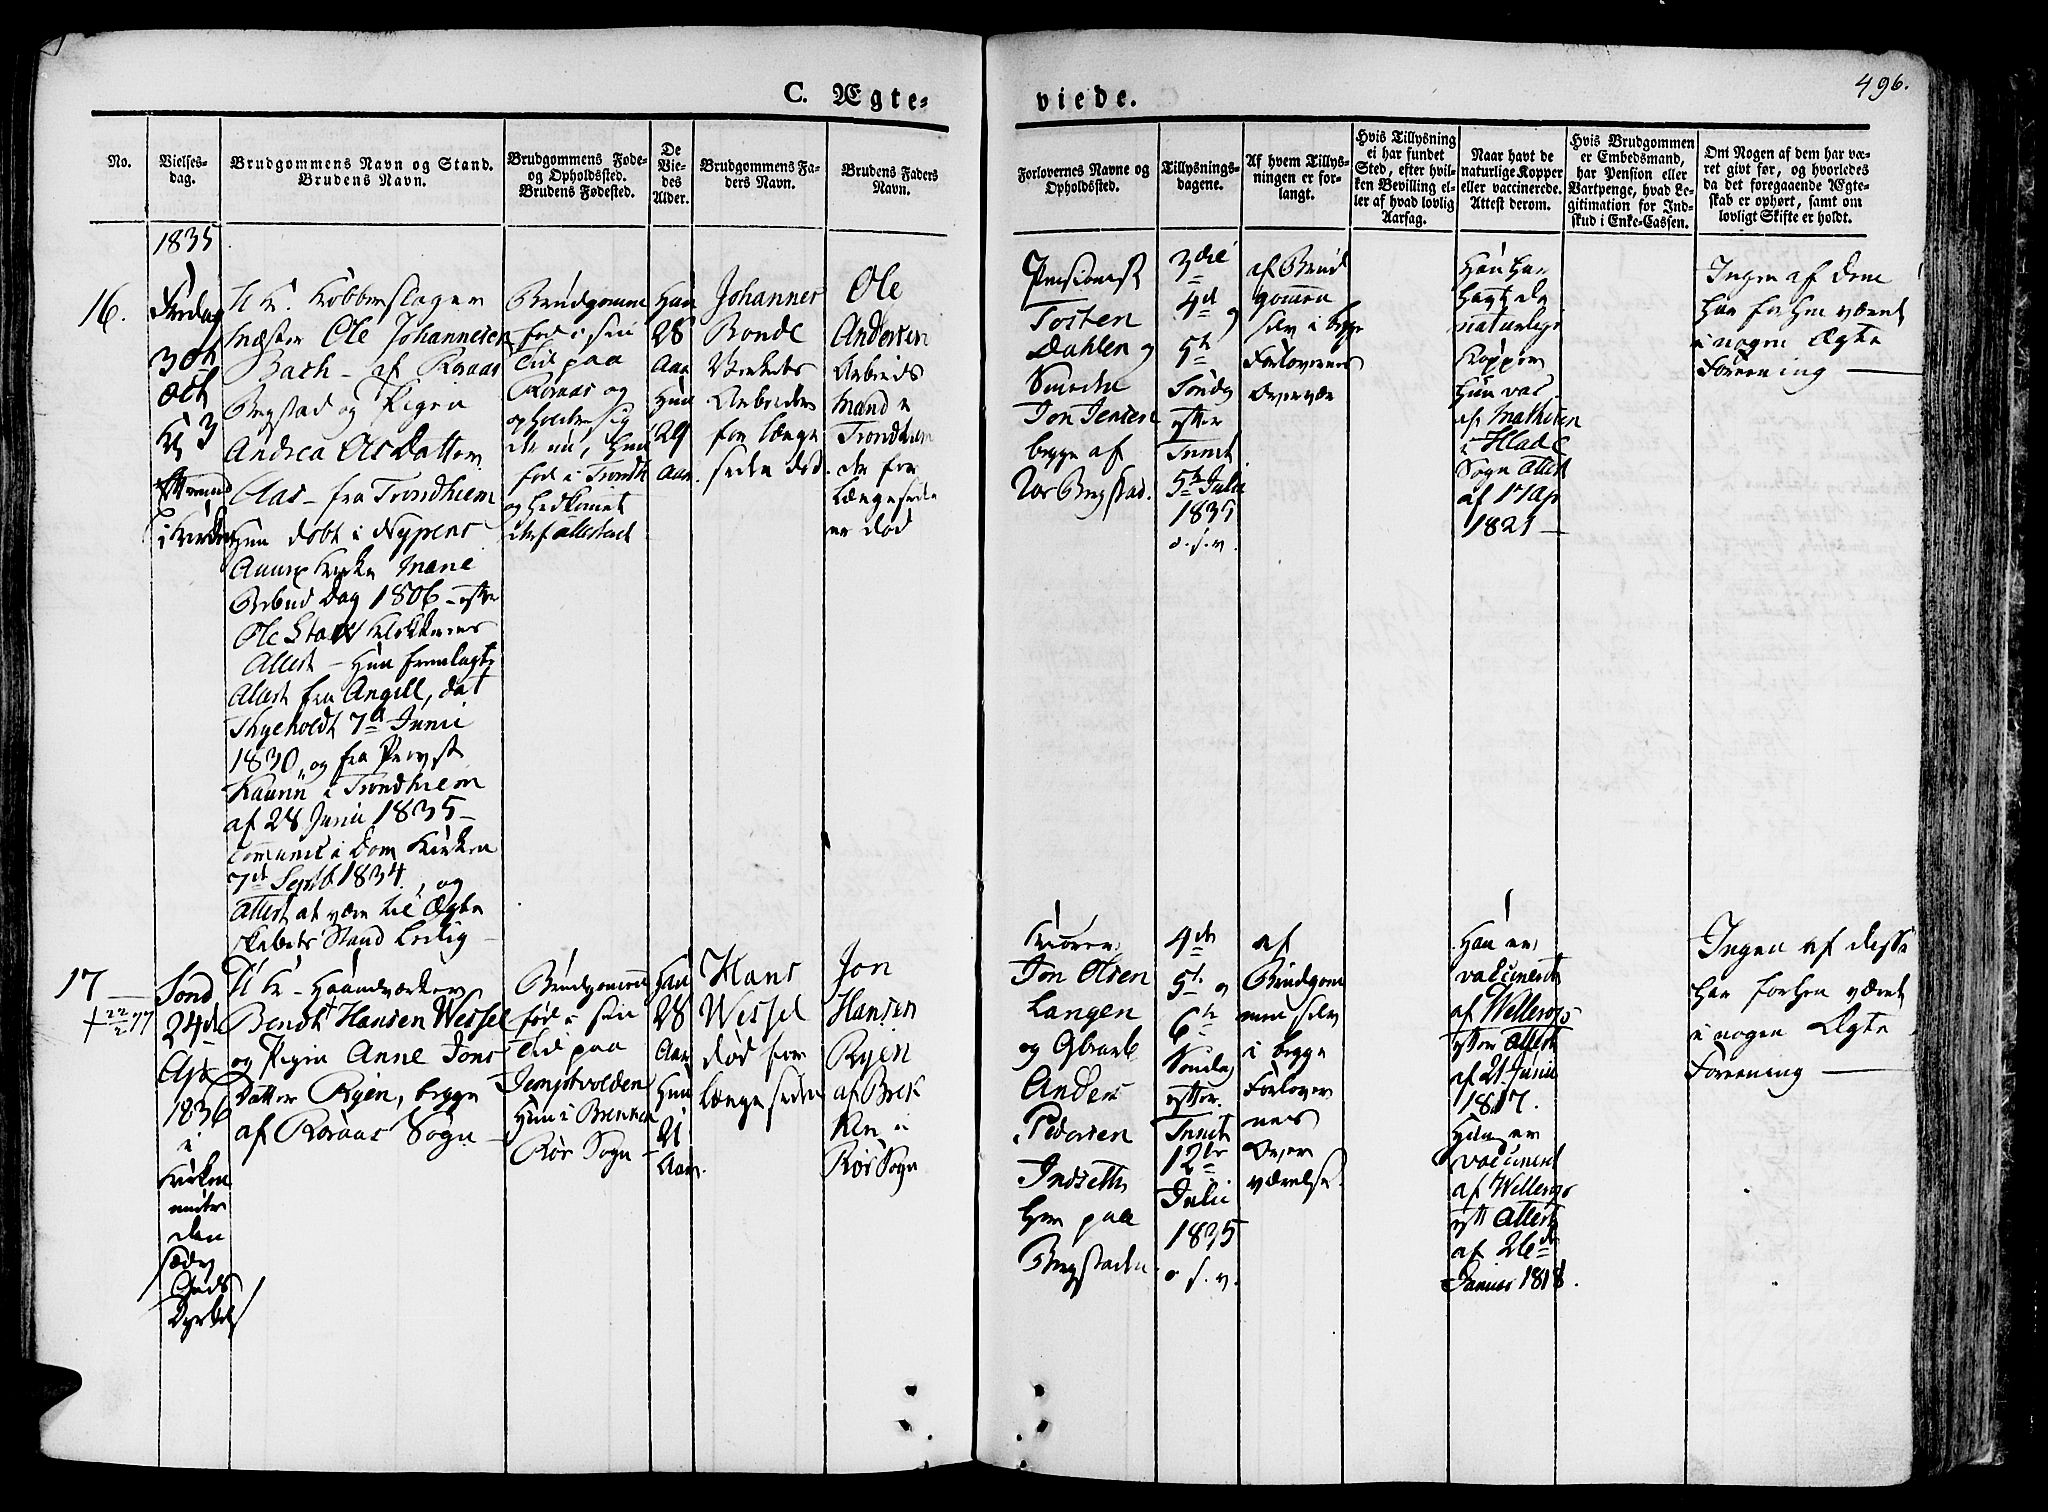 496.
C. Ægte-
viede.
No.
Vielses-
dag.
Brudgommens Navn og Stand.
Brudens Navn.
Brudgommens Føde-
og Opholdssted.
Brudens Fødested.
De
Vie-
des
Alder.
Brudgommens Fa-
ders Navn.
Brudens Faders
Navn.
Forlovernes Navne og
Opholdssted.
Tillysnings-
dagene.
Af hvem Tillys-
ningen er for-
langt.
Hvis Tillysning
ei har fundet
Sted, efter hvil-
ken Bevilling el-
ler af hvad lovlig
Aarsag.
Naar havt de
naturlige Kopper
eller vaccinerede.
Attest derom.
Hvis Brudgommen
er Embedsmand,
har Pension eller
Vartpenge, hvad Le-
gitimation for Ind-
skud i Enke-Cassen.
Om Nogen af dem har væ-
ret givt før, og hvorledes
da det foregaaende Ægte-
skab er ophørt, samt om
lovligt Skifte er holdt.
1835
16.
Fredag
30te
Oct
Kl 3
i Kirken
Kobberslager
Mester Ole Johannesen
Bach - af Röraas
Bergstad og Pigen
Andrea Ols Datter
Aas - fra Trondhiem
Hun döbt i
Kirke
Dag 1806 - efter
Ole Klokkeres
Attest - Hun fremlagt
Attest fra Angell, dat
7de Junii
1830, og fra Provst
Kaurin i Trondhiem
af 28 Junii 1835 -
i Dom Kirken
7de Septb 1834, og
Attest at være til Ægte
skabets Stand Ledig
Brudgomme
fød i sin
Tid paa
Röraas og
opholder sig
der nu, Hun
fød i Trondh
og hidkommet
Han
28
Aar
Hun
29
Aar
Johannes
Bonde
Verkets
Arbeider
for længe
siden död.
Ole
Andersen
Arbeids
Mand i
Trondhiem
der for
længe siden
er död
Pensionist
Tosten
Dahlen og
Smeden
Jon Jensen
begge af
Rör Bergstad.
3die
4de og
5te
Söndag
efter
Trinit
5te Julii
1835
o. s. v.
af Brud
gommen
selv i begge
Forloveres
Overvær
Han har
havt de
naturlige
Kopper
Hun vac
af Mathisen
i Hlade
Sogn Attest
af 17 Apr
1821 -
Ingen af dem
har forhen været
i nogen Ægte
Forening -
17
+ 22/2 77
Sönd
24de
Apr
1836
i
Kirken
under
den
sædv
Guds
Dyrkelse
Haandværker
Bendt Hansen Wessel
og Pigen Anne Jons
Datter Ryen, begge
af Röraas Sogn -
Brudgommen
fød i sin
Tid paa
Jemptvolden
Hun i Brekken
Rör Sogn -
Han
28
Aar
Hun
21
Aar.
Hans
Wessel
död for
længe siden
Jon
Hansen
Ryen
af Brek
ken i
Rör Sogn
Jon Olsen
Langen
og
Anders
Pedersen
Indseth
her paa
Bergstaden.
4de
5te og
6te
Söndag
efter
Trinit
12te
Julii
1835
o. s. v.
af
Brudgom
men selv
i begge
Forlover
nes
Over
værelse.
Han er
vaccineret
af Wellerop
efter Attest
af 21 Junii
1817.
Hun er
vaccineret
af Wellerop
eft Attest
af 26de
Januar 1818.
Ingen af disse
har forhen været
i nogen Ægte
Forening -